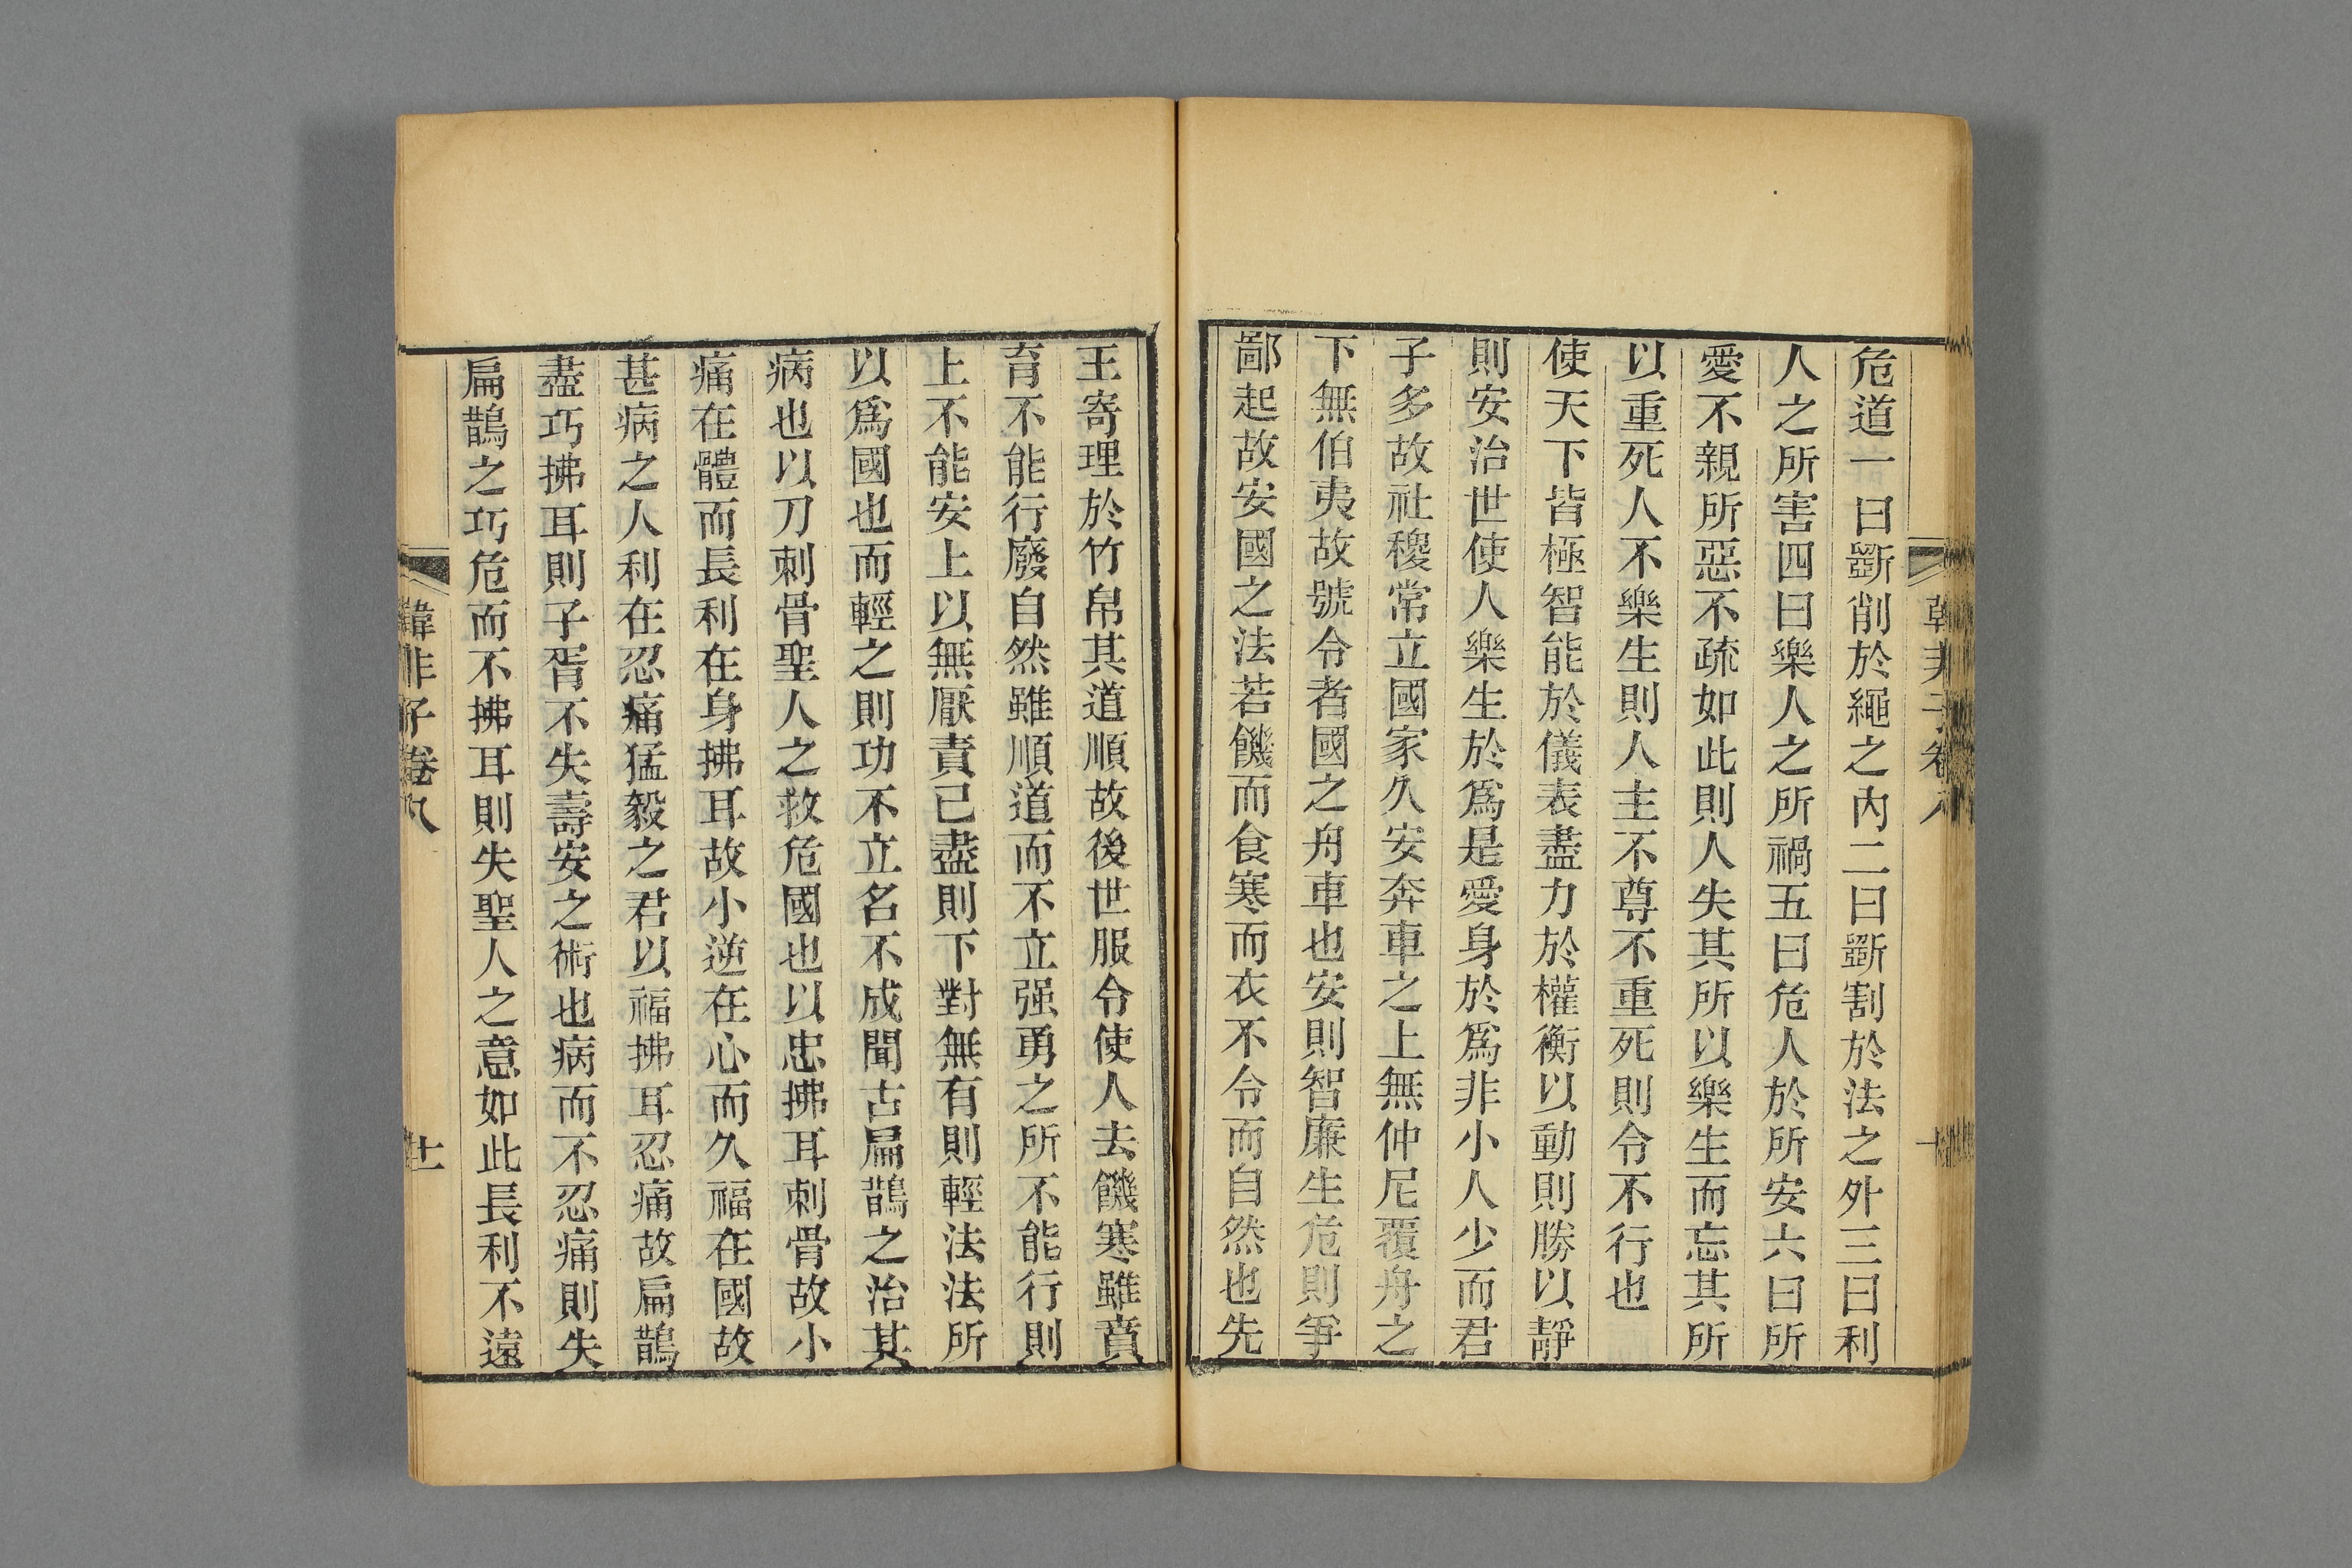 危道一曰斵削於繩之內二曰斵割於法之外三曰利
人之所害四曰樂人之所禍五曰危人於所安六曰所
愛不親所惡不疏如此則人失其所以樂生而忘其所
以重死人不樂生則人主不尊不重死則令不行也
使天下皆極智能於儀表盡力於權衡以動則勝以靜
則安治世使人樂生於爲是愛身於爲非小人少而君
子多故社稷常立國家久安奔車之上無仲尼覆舟之
下無伯夷故號令者國之舟車也安則智廉生危則爭
鄙起故安國之法若饑而食寒而衣不令而自然也先
王寄理於竹帛其道順故後世服令使人去饑寒雖賁
育不能行廢自然雖順道而不立强勇之所不能行則
上不能安上以無厭責已盡則下對無有則輕法法所
以爲國也而輕之則功不立名不成聞古扁鵲之治其
病也以刀刺骨聖人之救危國也以忠拂耳刺骨故小
痛在體而長利在身拂耳故小逆在心而久福在國故
甚病之人利在忍痛猛毅之君以福拂耳忍痛故扁鵲
盡巧拂耳則子胥不失壽安之術也病而不忍痛則失
扁鵲之巧危而不拂耳則失聖人之意如此長利不遠
韓非子卷八
十一